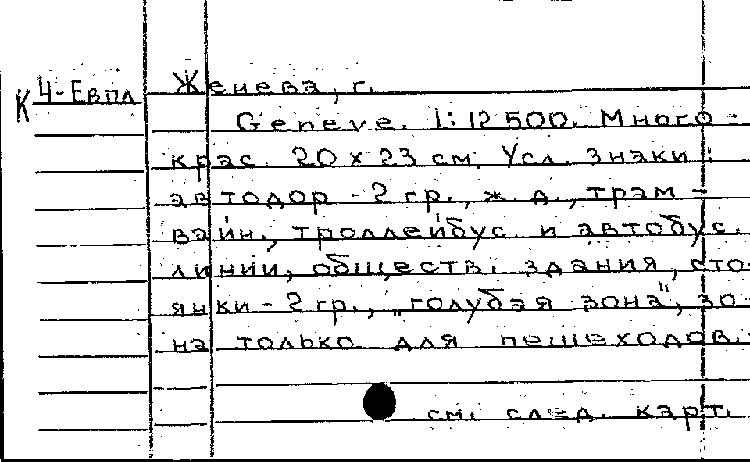 К 4-Евпл Женева, г.
Geneve. 1:12 500. Много-
крас. 20 x 23 см. Усл. знаки:
автодор - 2 гр., ж. д., трам-
вайн., троллейбус и автобус.
линии, обществ. здания, сто-
янки - 2 гр., „голубая зона", зо-
на только для пешеходов.
см. след. карт.